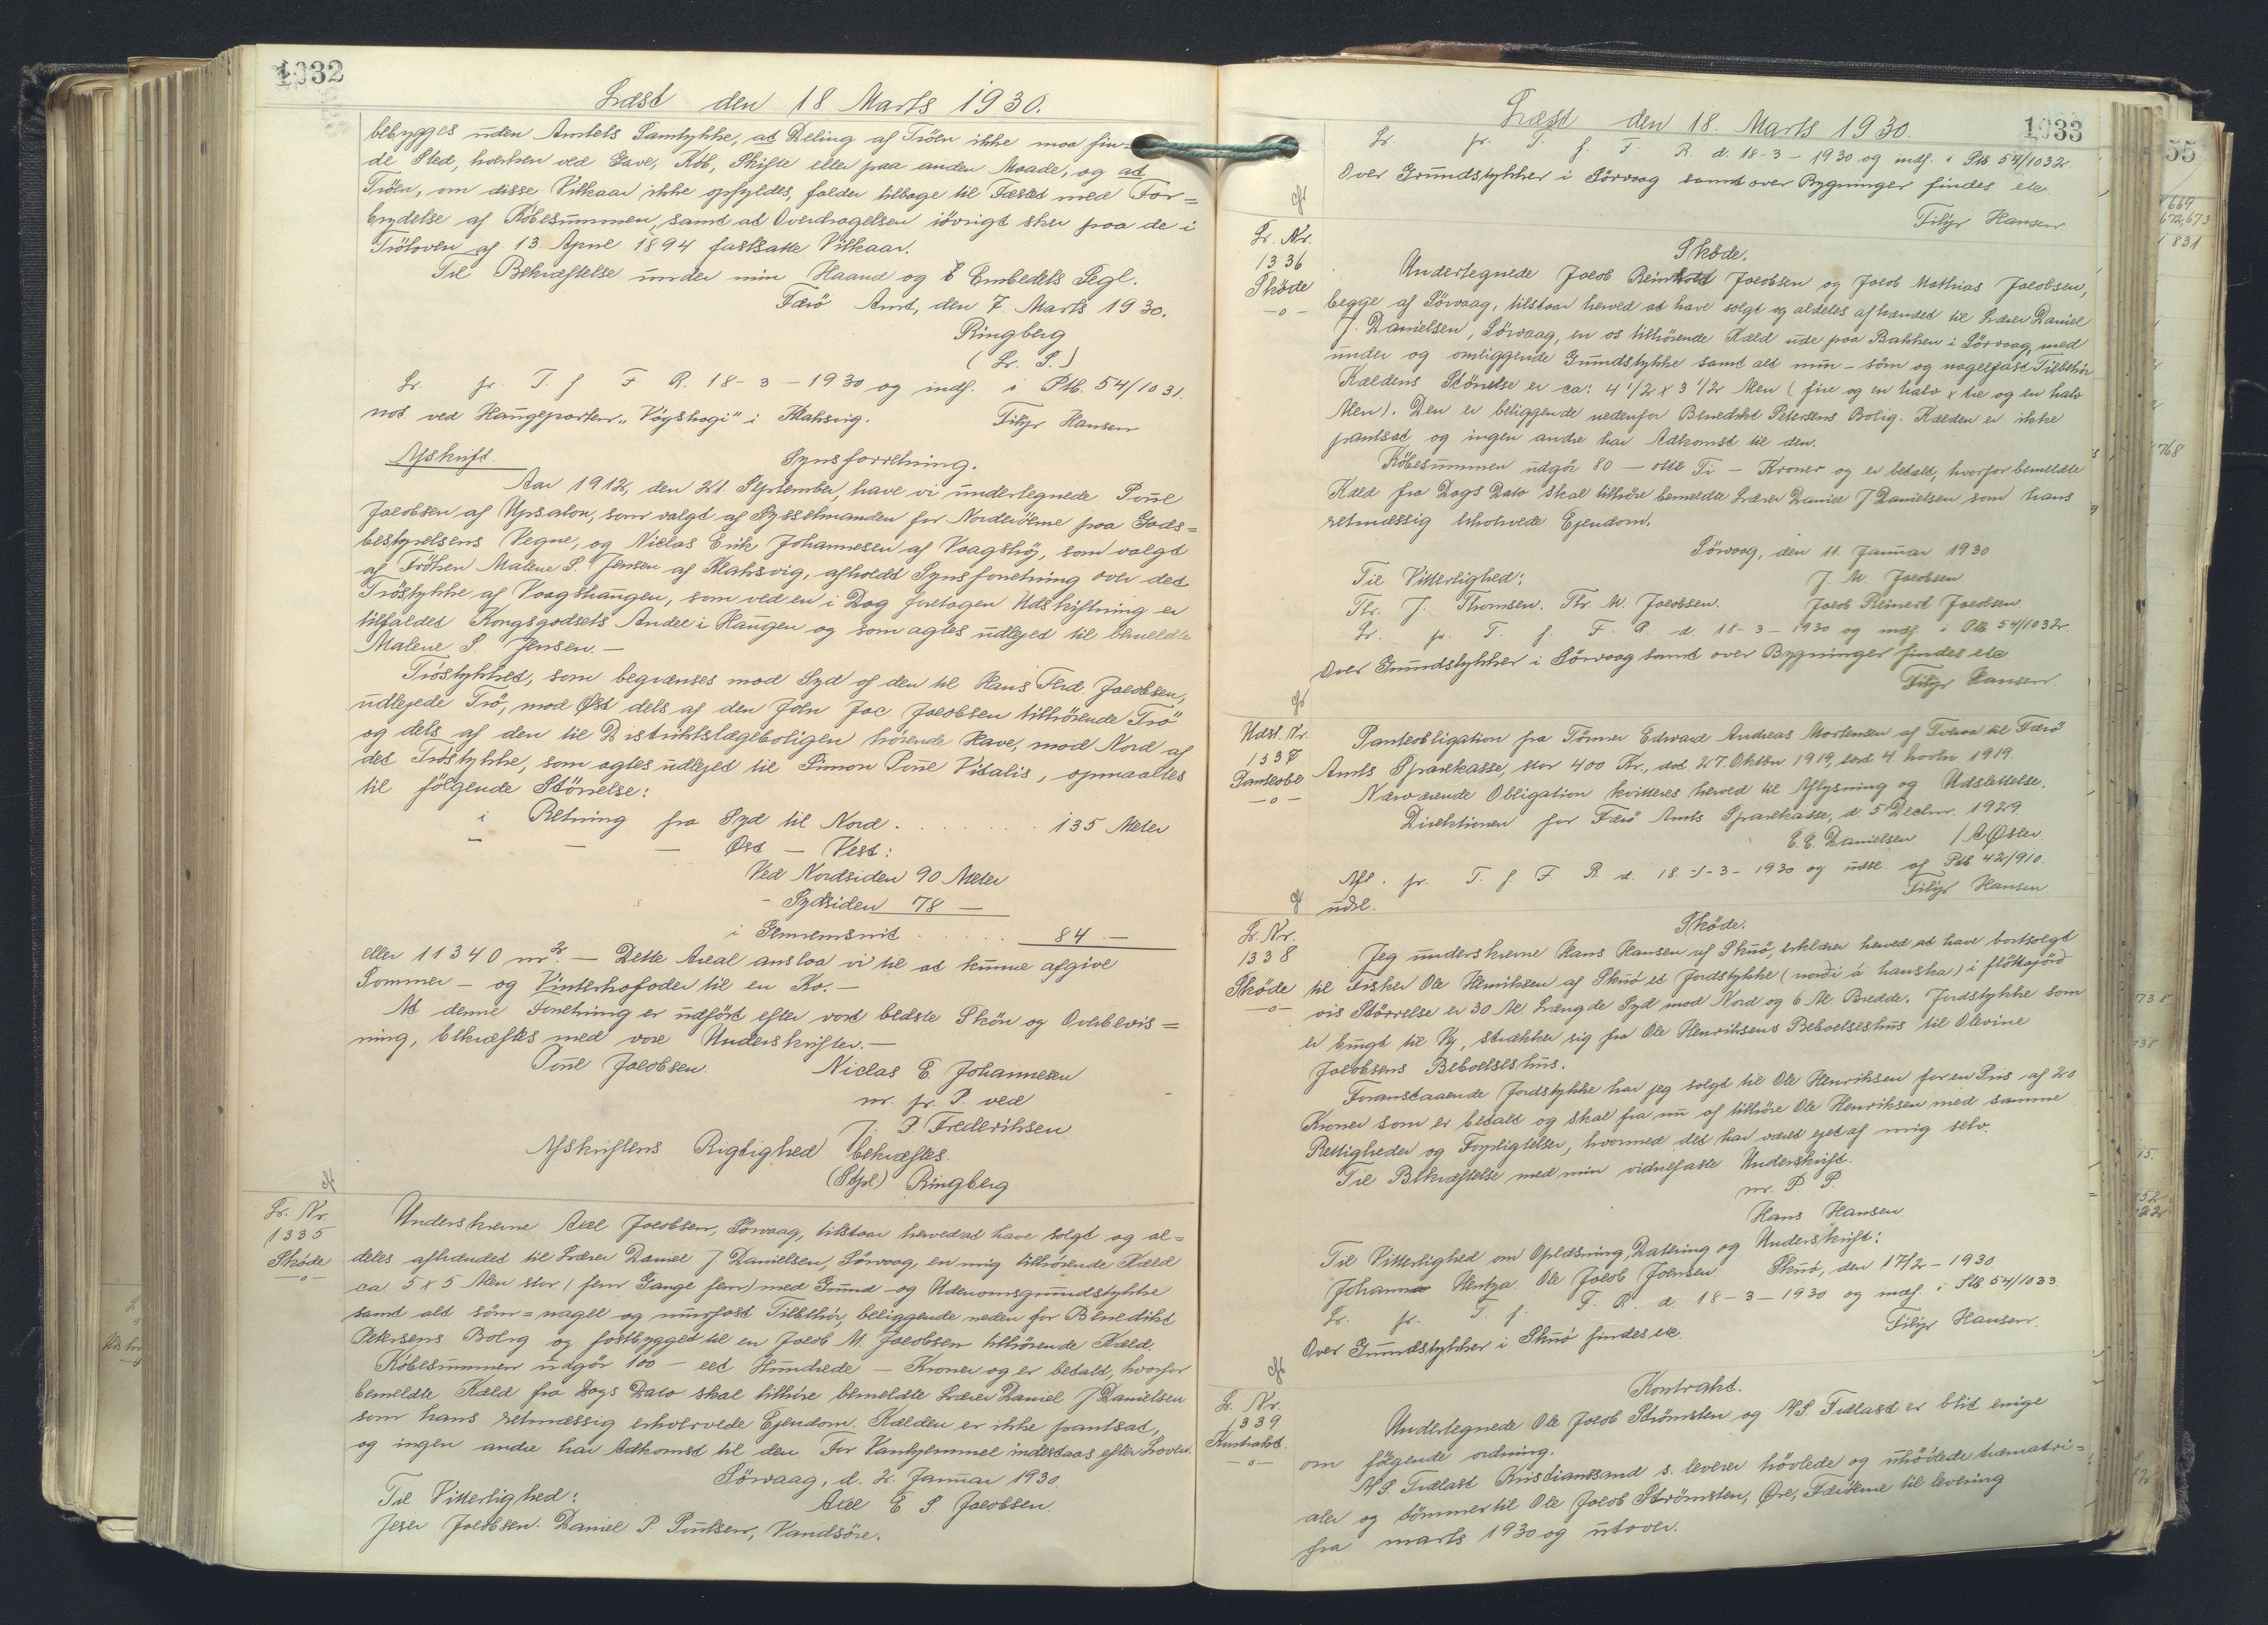 1032
Læst den 18 Marts 1930.
bebygges uden Amtets Samtykke, at Deling af Tröen ikke maa fin-
de Sted, hverken ved Gave, Køb, Skifte eller paa anden Maade, og at
Tröen, om disse Vilkaar ikke opfyldes, falder tilbage til Fæstet med For=
brydelse af Købesummen, samt at Overdragelsen iövrigt sker paa de i
Tröloven af 13 April 1894 fastsatte Vilkaar.
Til Bekræftelse under min Haand og Embedets Segl.
Færö Amt, den 7. Marts 1930.
Ringberg
(L. S.)
Lr. fr. T. f. F R. 18-3-1930 og indf. i Ptb. 54/1031.
not ved Haugeparten "Vógshagi" i Klaksvig. Filip Hansen
Afskrift. Synsforretning.
Aar 1912, den 21. September, have vi undertegnede Poul
Jacobsen af Upsalon, som valgt af Sysselmanden for Norderöerne paa Gods=
bestyrelsens Vegne, og Niclas Erik Johannesen af Vaagshöj, som valgt
af Fröken Malene S. Jensen af Klaksvig, afholdt Synsforretning over det
Tröstykke af Vaagshaugen, som ved en i Dag foretagen Udskiftning er
tilfaldet Kongsgodsets Andel i Haugen og som agtes udlejet til bemeldte
Malene S. Jensen.—
Tröstykket, som begrænses mod Syd af den til Hans Fred. Jacobsen,
udlejede Trö, mod Øst dels af den John Jac. Jacobsen tilhörende Trö
og dels af den til Distriktslægeboligen hörende Have, mod Nord af
det Tröstykke, som agtes udlejet til Simon Poul Vitalis, opmaaltes
til fölgende Störrelse:
i Retning fra Syd til Nord . . . . . . . . 135 Meter
— — — Øst — Vest:
Ved Nordsiden 90 Meter
- Sydsiden 78 —
i Gennemsnit . . . . . 84 —
eller 11340 m². — Dette Areal ansloa vi til at kunne afgive
Sommer - og Vinterhofoder til en Ko.—
At denne Forretning er udfört efter vort bedste Skön og Overbevis=
ning, bekræftes med vore Underskrifter.—
Poul Jacobsen. Niclas E. Johannesen
m. fr. P. ved
J. P. Frederiksen
Afskriftens Rigtighed bekræftes.
(Stpl.) Ringberg
Lr. Nr.
1335
Sköde
—o—
Underskrevne Axel Jacobsen, Sörvaag, tilstaar herved at have solgt og al=
deles afhændet til Lærer Daniel J Danielsen, Sörvaag, en mig tilhörende Kæld
ca. 5 x 5 Alen stor (fem Gange fem) med Grund - og Udenomsgrundstykke
samt alt söm = nagel og murfast Tilbehör, beliggende neden for Benedikt
Petersens Bolig og fastbygget til en Jacob M. Jacobsen tilhörende Kæld.
Købesummen udgör 100 - eet Hundrede - Kroner og er betalt, hvorfor
bemeldte Kæld fra Dags Dato skal tilhöre bemeldte Lærer Daniel J Danielsen
som hans retmæssig erhvervede Ejendom. Kælden er ikke pantsat,
og ingen andre har Adkomst til den. For Vanhjemmel indestaas efter Loven.
Sörvaag, d. 2. Januar 1930.
Til Vitterlighed: Axel E. S. Jacobsen
Jens Jacobsen. Daniel P. Poulsen, Vandsöre.
1033
Læst den 18. Marts 1930.
Lr fr. T. f. F. R. d. 18-3-1930 og indf. i Ptb. 54/1032.
Over Grundstykker i Sörvaag samt over Bygninger findes etc.
Filip Hansen
Lr. Nr.
1336
Sköde
—o—
Sköde.
Undertegnede Jacob Reinhold Jacobsen og Jacob Mathias Jacobsen,
begge af Sörvaag, tilstaar herved at have solgt og aldeles afhændet til Lærer Daniel
J. Danielsen, Sörvaag, en os tilhörende Kæld ude paa Bakken i Sörvaag, med
under og omliggende Grundstykke samt alt mur - söm og nagelfast Tilbehör
Kældens Störrelse er ca: 4 1/2 x 3 1/2 Alen (fire og en halv x tre og en halv
Alen). Den er beliggende nedenfor Benedikt Petersens Bolig. Kælden er ikke
pantsat og ingen andre har Adkomst til den.
Købesummen udgör 80 - otte Ti - Kroner og er betalt, hvorfor bemeldte
Kæld fra Dags Dato skal tilhöre bemeldte Lærer Daniel J Danielsen som hans
retmæssig erhvervede Ejendom.
Sörvaag, den 11. Januar 1930
Til Vitterlighed: J. M. Jacobsen
Thr. J. Thomsen. Thr. M. Jacobsen. Jacob Reinert Jacobsen
Lr. fr. T. f. F. R. d. 18-3-1930 og indf. i Ptb 54/1032.
Over Grundstykker i Sörvaag samt over Bygninger findes etc
Filip Hansen.
Udsl. Nr.
1337
Panteobl
—o—
Panteobligation fra Tömrer Edward Andreas Mortensen af Tveraa til Færö
Amts Sparekasse, stor 400 Kr., dat. 27. Oktbr. 1919, læst 4 Novbr 1919.
Nærværende Obligation kvitteres herved til Aflysning og Udslettelse.
Direktionen for Færö Amts Sparekasse, d. 5 Decbr. 1929.
E. E. Danielsen / A Øster
Afl. fr. T. f F. R. d. 18-3-1930 og udsl. af Ptb 42/910.
udsl. Filip Hansen
Lr. Nr.
1338
Sköde
—o—
Sköde.
Jeg underskrevne Hans Hansen af Skuö, erklærer herved at have bortsolgt
til Fisker Ole Henriksen af Skuö et Jordstykke (norði á hanska) i flöttajörð
vis Störrelse er 30 Al. Længde Syd mod Nord og 6 Al Bredde. Jordstykke som
er brugt til Vej, strækker sig fra Ole Henriksens Beboelseshus til Olevine
Jacobsens Beboelseshus.
Foranstaaende Jordstykke har jeg solgt til Ole Henriksen for en Pris af 20
Kroner som er betalt og skal fra nu af tilhöre Ole Henriksen med samme
Rettigheder og Forpligtelser, hvormed det har været ejet af mig selv.
Til Bekræftelse med min vidnefaste Underskrift.
m. P P.
Hans Hansen
Til Vitterlighed om Oplæsning, Datering og Underskrift:
Johanna Hentza. Ole Jacob Joensen Skuö, den 17/2-1930.
Lr. fr. T. f. F. R. d. 18-3-1930 og indf. i Ptb. 54/1033
Over Grundstykker i Skuö findes etc. Filip Hansen.
Lr. Nr.
1339
Kontrakt.
—o—
Kontrakt.
Undertegnede Ole Jacob Strömsten og A/S. Trælast er blit enige
om fölgende ordning.
A/S. Trælast Kristiansand s. leverer hövlede og uhövlede træmatri=
aler og tömmer til Ole Jacob Strömsten, Øre, Færöerne til levering
fra marts 1930 og utover.
55
669
672,673
831
768
738
738
15.